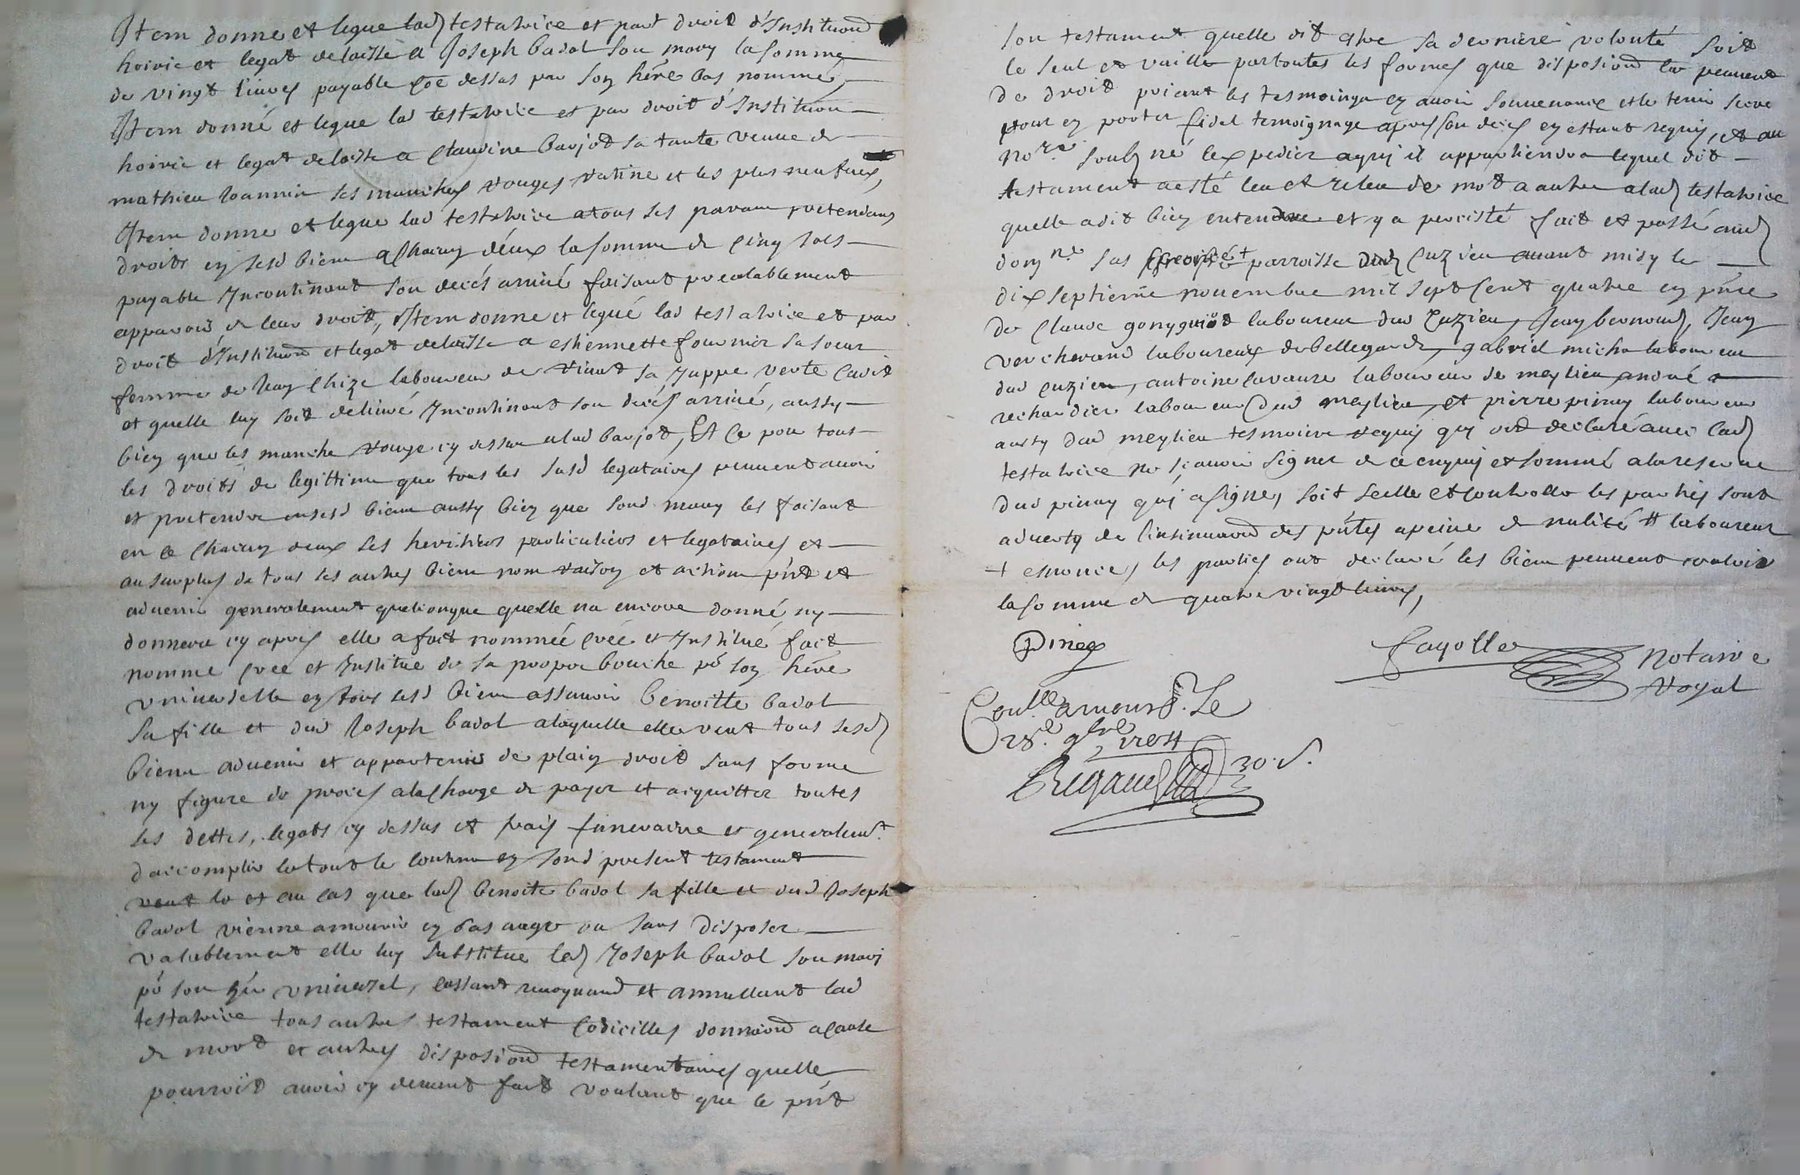 Item donne et legue lad testatrice et part droit d'Institutiond
hoirie et legat delaisse a Joseph badol son mary la somme
de vingt livres payable coe dessus par son hére bas nommé,
Item donné et legue lad testatrice et par droit d'Institution
hoirie et legat delaisse a Claudine baujot sa tante veuve de
mathieu Joannin ses manches rouges ratine et les plus neufues,
Item donne et legue lad testatrice a tous ses parans pretendans
droits en sesd biens a Chacun déux la somme de Cinq sols
payable Incontinant son decés arrivé faisant prealablement
apparoir de leur droit, Item donne et legué lad testatrice et par
droit d'Institutiond et legat delaisse a estiennette fournier sa soeur
femme de Jean Chize laboureur de sa Juppe verte Cadis
et quelle luy soit delivré Incontinant son decés arrivé, aussy
bien que les manche rouge cy dessus a lad baujot, Et Ce pour tous
les droits de legittime que tous les susd legataires peuvent avoir
et pretendre en sesd biens aussy bien que sond mary les faisant
en ce Chacun deux ses heritiers particuliers et legataires et
au surplus de tous ses autres biens nom raison et action pñt et
advenir generalement quelconque quelle na encore donné ny
donnera cy apres elle a fait nommée creé et Institué fait
nomme cree et Institue de sa propre bouche po son hére
universelle en tous sesd biens assavoir benoitte badol
sa fille et dud Joseph badol a laquelle elle veut tous sesd
biens advenir et appartenir de plain droit sans forme
ny figure de proces a la Charge de payer et acquitter toutes
ses dettes, legats cy dessus et frais funeraire et generalemt
daccomplir le tout le contenu en sond present testament
veut le et au cas que lad benoite badol sa fille et dud Joseph
badol vienne a mourir en bas auge ou sans disposer
valablement elle luy substitue led Joseph badol son mari
po son hér universel, cassant revoquand et annullant lad
testatrice tous autres testament Codicilles donnaiond a Cause
de mort et autres disposiond testamentaires quelle
pourroit avoir cy devant fait voulant que le pñt
son testament quelle dit etre sa derniere volonté soit
le seul et vaille par toutes les formes que disposiond la peuvent
de droit priant les tesmoings en avoir souvenance et le tenir secre
pour en porter fidel temoignage apres son decés en estant requis, et au
nore. soubs né lexpedier a qui il appartiendra lequel dit
testament a esté leu et releu de mot a autre a lad testatrice
quelle a dit bien entendre et y a percisté fait et passé aud
+ parroisse dud Cuzieu avant midy le
dix septieme novembre mil sept Cent quatre en pñce
de Claude gonyguiot laboureur dud Cuzieu, Jean bernoud, Jean
vercherand laboureux de bellegarde, gabriel micho laboureur
dud cuzieu, antoine lavaure laboureur de meylieu André
rechandier laboureur dud meylieu, et pierre pinay laboureur
aussy dud meylieu tesmoins requis qui ont declaré avec lad
testatrice ne sçavoir signer de ce enquis et sommé a la reserve
dud pinay qui a signes, soit scelle et controlle les parties sont
adverty de linsinuaond des pñtes a peine de nulité # laboureur
+ esnoncé, les parties ont declaré les biens peuvent valoir
la somme de quatre vingt livres,
Pinay
fayolle
Notaire
Royal
Conlle. a mourd. Le
28e. 9bre. 1704
Rigaud
30 s.